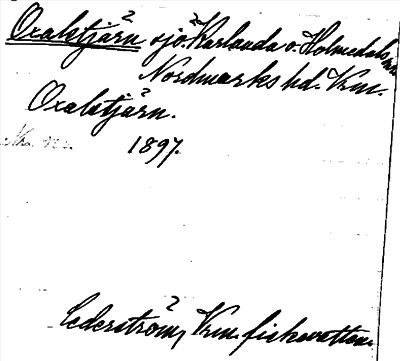 Oxalstjärn sjö Karlanda o. Holmedals snr
Nordmarks hd. Vrm.
Oxalstjärn.
1897.
Cederström, Vrm. fiskevatten.